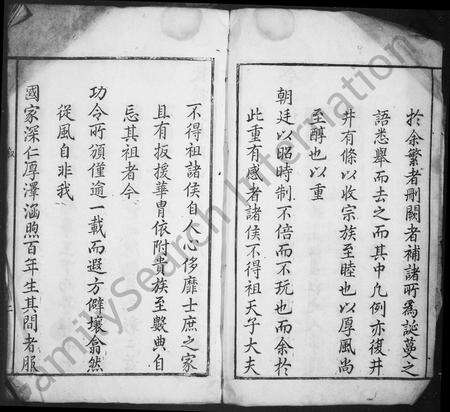 於余繁者刪闕者補諸所為誕蔓之
語悉舉而去之而其中凡例亦復井
井有條以收宗族至睦也以厚風尚
至醇也以重
朝廷以昭時制不倍而不玩也而余於
此重有感者諸侯不得祖天子大夫
不得祖諸侯自人心侈靡士庶之家
且有扳援華胄依附貴族至數典自
忘其祖者今
功令所頒僅逾一載而遐方僻壤翕然
從風自非我
國家深仁厚澤涵煦百年生其間者服
FamilySearch International